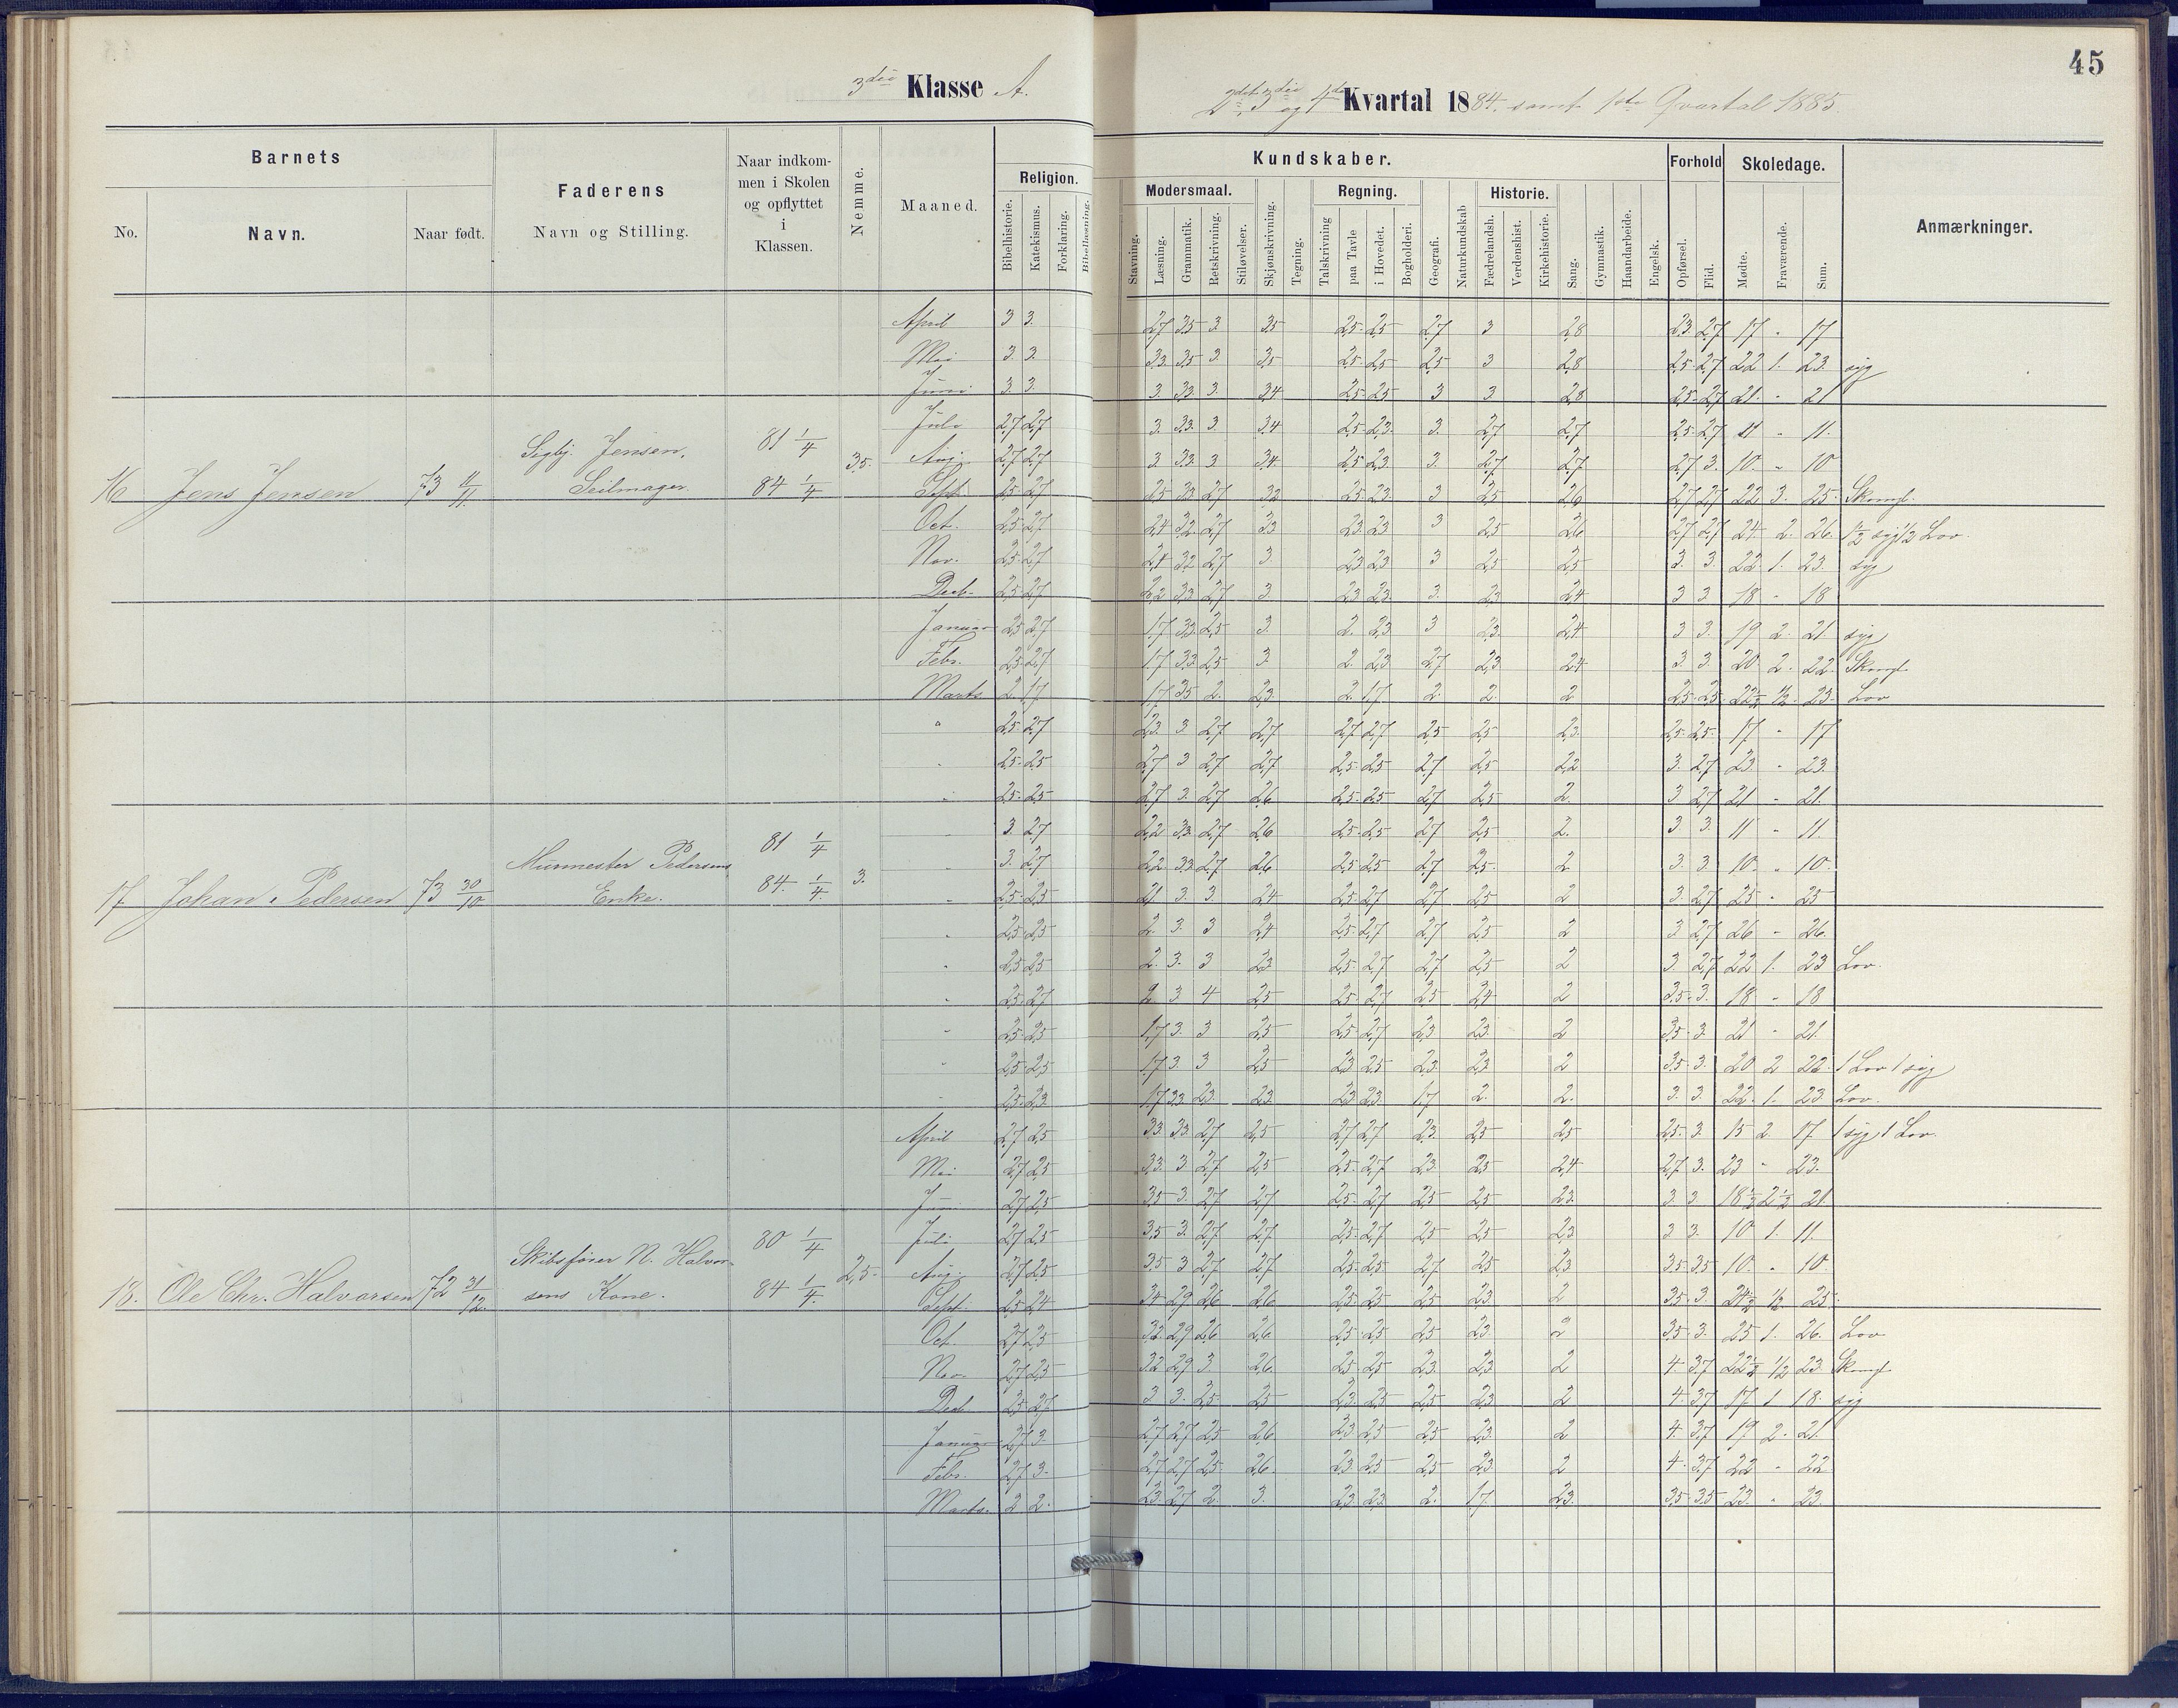 45
3die Klasse A.
2det 3die og 4de Kvartal 1884. samt 1ste Qvartal 1885
Barnets
No.
Navn.
Naar født.
Faderens
Navn og Stilling.
Naar indkom-
men i Skolen
og opflyttet
i
Klassen.
Nemme.
Maaned.
Religion.
Bibelhistorie.
Katekismus.
Forklaring.
Bibellæsning.
Kundskaber.
Modersmaal.
Stavning.
Læsning.
Grammatik.
Retskrivning.
Stiløvelser.
Skjønskrivning.
Tegning.
Regning.
Talskrivning
paa Tavle
i Hovedet.
Bogholderi.
Geografi.
Naturkundskab
Historie.
Fædrelandsh.
Verdenshist.
Kirkehistorie.
Sang.
Gymnastik.
Haandarbeide.
Engelsk.
Forhold
Opførsel.
Flid.
Skoledage.
Mødte.
Fraværende.
Sum.
Anmærkninger.
16 Jens Jensen 73 11/11. Jensen, Seilmager. 81 1/4 84 1/4 3,5.
April 3 3. 2,7 3,5 3 3,5 2,5 2,5 2,7 3 2,8 2,3 2,7 17 " 17
Mai 3. 3. 3,3 3,5 3 3,5 2,5 2,5 2,5 3 2,8 2,5 2,7 22 1. 23. syg
Juni 3 3. 3. 3,3 3. 3,4 2,5 2,5 3 3 2,8 2,5 2,7 21. " 21
Juli 2,7 2,7 3. 3,3. 3. 3,4 2,5 2,3. 3. 2,7 2,7 2,5 2,7 11 " 11.
Aug. 2,7 2,7 3. 3,3. 3 3,4. 2,5 2,3. 3. 2,7 2,7 2,7 3. 10. " 10
Sept. 2,5 2,7 2,5 3,3 2,7 3,2 2,5 2,3. 3 2,5 2,6 2,7 2,7 22 3. 25.
Oct. 2,5 2,7 2,4 3,2 2,7 3,3 2,3 2,3 3 2,5 2,6 2,7 2,7 24. 2. 26. 1/2 syg 1/2 Lov.
Nov. 2,5 2,7 2,4 3,2 2,7 3. 2,3 2,3 3 2,5 2,5 3. 3. 22. 1. 23. syg
Decb. 2,5 2,7 2,2 3,3 2,7 3 2,3 2,3. 3. 2,3 2,4 3 3 18 " 18
Januar 2,5 2,7 1,7 3,3 2,5 3. 2. 2,3. 3 2,3. 2,4 3 3. 19 2. 21. syg
Febr. 2,5 2,7 1,7 3,3 2,5 3. 2. 2,3 2,7 2,3 2,4 3. 3. 20 2. 22.
Marts 2. 1,7 1,7 3,5 2. 2,3. 2. 1,7 2. 2. 2 2,5 2,5 22 1/2 1/2. 23. Lov
17 Johan Pedersen 73 30/10 Pedersens Enke. 81 1/4 84. 1/4. 3.
" 2,5 2,7 2,3. 3 2,7 2,7 2,7 2,7 2,5 2,5 2,3. 2,5 2,5. 17 " 17
" 2,5 2,5 2,7 3 2,7 2,7 2,5 2,5 2,7 2,5 2,2 3. 2,7 23. " 23.
" 2,5 2,5 2,7 3. 2,7 2,6 2,5 2,5 2,7 2,5 2. 3 2,7 21 " 21.
" 3. 2,7 2,2 3,3. 2,7 2,6 2,5 2,5 2,7 2,5 2. 3 3. 11 " 11.
" 3. 2,7 2,2. 3,3 2,7 2,6 2,5 2,5 2,7 2,5 2 3. 3. 10. " 10.
" 2,5 2,5 2,1 3. 3. 2,4 2,5 2,7 2,7 2,5 2 3. 2,7 25 " 25
" 2,5 2,5 2. 3. 3 2,4 2,5 2,7 2,7 2,5 2 3 2,7 26 " 26.
" 2,5 2,5 2. 3. 3 2,3 2,5 2,7 2,7 2,5 2 3. 2,7 22 1. 23 Lov.
" 2,5 2,7 2 3 4 2,5 2,5 2,7 2,5 2,4 2 3,5 3. 18 " 18
" 2,5 2,5 1,7 3. 3 2,5 2,5 2,7 2,3 2,3 2 3,5 3. 21 " 21.
" 2,5 2,5 1,7 3. 3 2,5 2,3 2,5 2,3 2,3 2 3,5 3. 20 2 22. 1 Lov 1 syg
" 2,5 2,3 1,7 3,3 2,3. 2,3. 2,3 2,3. 1,7 2. 2. 3. 3. 22 1. 23 Lov.
18. Ole Chr. Halvorsen 72 31/12. Skibsfører N. Halvor- sens Kone. 80 1/4 84 1/4. 2,5.
April 2,7 2,5 3,3. 3,3. 2,7 2,5 2,7 2,7 2,3. 2,5 2,5 2,5 3. 15 2. 17. 1 syg 1 Lov.
Mai 2,7 2,5 3,3. 3 2,7 2,5 2,5 2,7 2,3. 2,5 2,4 2,7 3. 23 " 23.
Juni 2,7 2,5 3,5 3. 2,7 2,7 2,5 2,7 2,5 2,5 2,3. 3. 3. 18 1/2 2 1/2 21.
Juli 2,7 2,5 3,5 3. 2,7 2,7 2,5 2,7 2,5 2,5 2,3 3 3. 10 1. 11.
Aug. 2,7 2,5 3,5 3 2,7 2,7 2,5 2,5 2,7 2,5 2,3 3,5 3,5 10. " 10.
Sept. 2,5 2,4 3,4 2,9 2,6 2,6 2,5 2,5 2,5 2,3. 2 3,5 3. 24 1/2 1/2 25.
Oct. 2,7 2,5 3,2. 2,9 2,6 2,6 2,5 2,5 2,5 2,3 2 3,5 3. 25 1. 26. Lov
Nov. 2,7 2,5 3,2 2,9 3 2,6. 2,5 2,5 2,3. 2,3 2 4. 3,7 22 1/2 1/2 23
Decb 2,5 2,7 3 3. 2,5 2,5 2,3. 2,5 2,5 2,3 2 4. 3,7 17 1 18. syg
Januar 2,7 3. 2,7 2,7 2,5 2,6 2,3. 2,5 2,5 2,3 2 4. 3,7 19 2. 21.
Febr. 2,7 3. 2,7 2,7 2,5 2,6. 2,3. 2,5 2,5 2,3 2 4. 3,7 22 " 22
Marts. 2 2. 2,3. 2,7 2. 3. 2,3. 2,3. 2. 1,7. 2,3. 3,5 3,5 23. " 23.